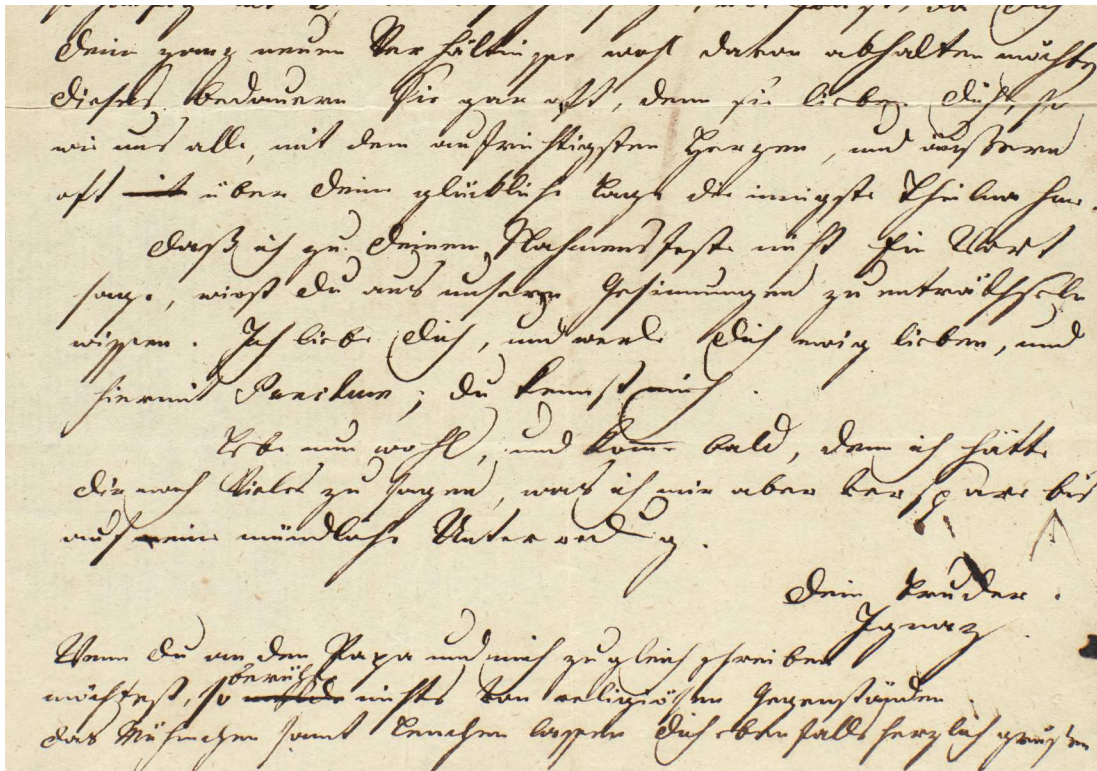 dein ganz neuen Verhältnisse wohl davon abhalten möchten
dieses bedauern sie gar oft, denn sie lieben dich, so
wie uns alle, mit dem aufrichtigsten Herzen, und äußern
oft über deine glückliche Lage die innigste Theilnahme.
Daß ich zu deinem Nahmensfeste nicht ein Wort
sage, wirst du aus unsern Gesinnungen zu enträthseln
wissen. Ich liebe dich, und werde dich ewig lieben, und
hiermit Punctum; du kennst mich.
Lebe nun wohl, und komme bald, denn ich hätte
dir noch Vieles zu sagen, was ich mir aber verspare bis
auf eine mündliche Unterredung.
Dein Bruder
Ignaz
Wenn du an den Papa und mich zugleich schreiben
möchtest, so berühre nichts von religiösen Gegenständen
das Mühmchen samt Lenchen lassen dich ebenfalls herzlich grüßen